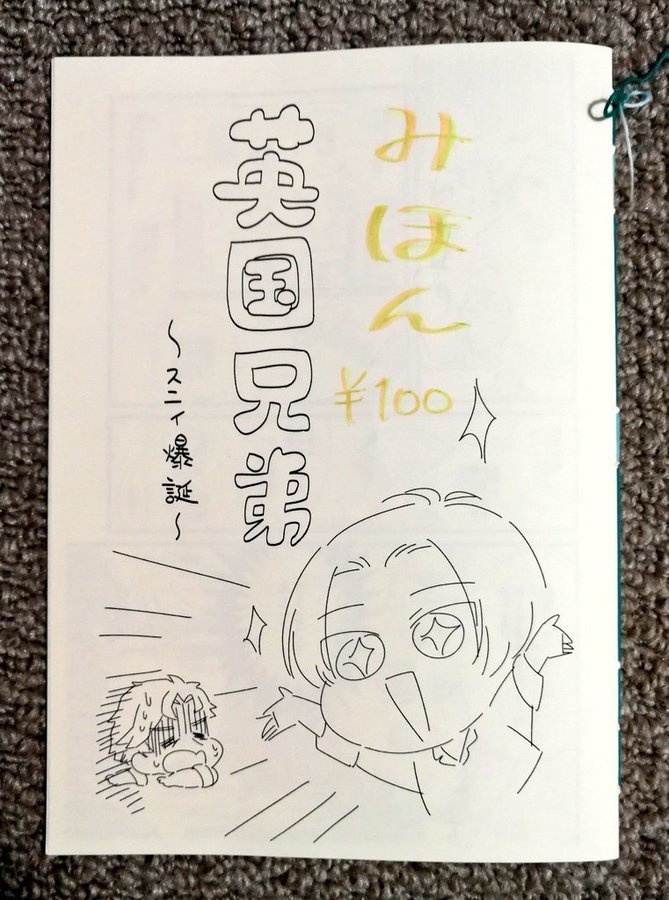 みほん
¥100
英国兄弟
～スニィ爆誕～